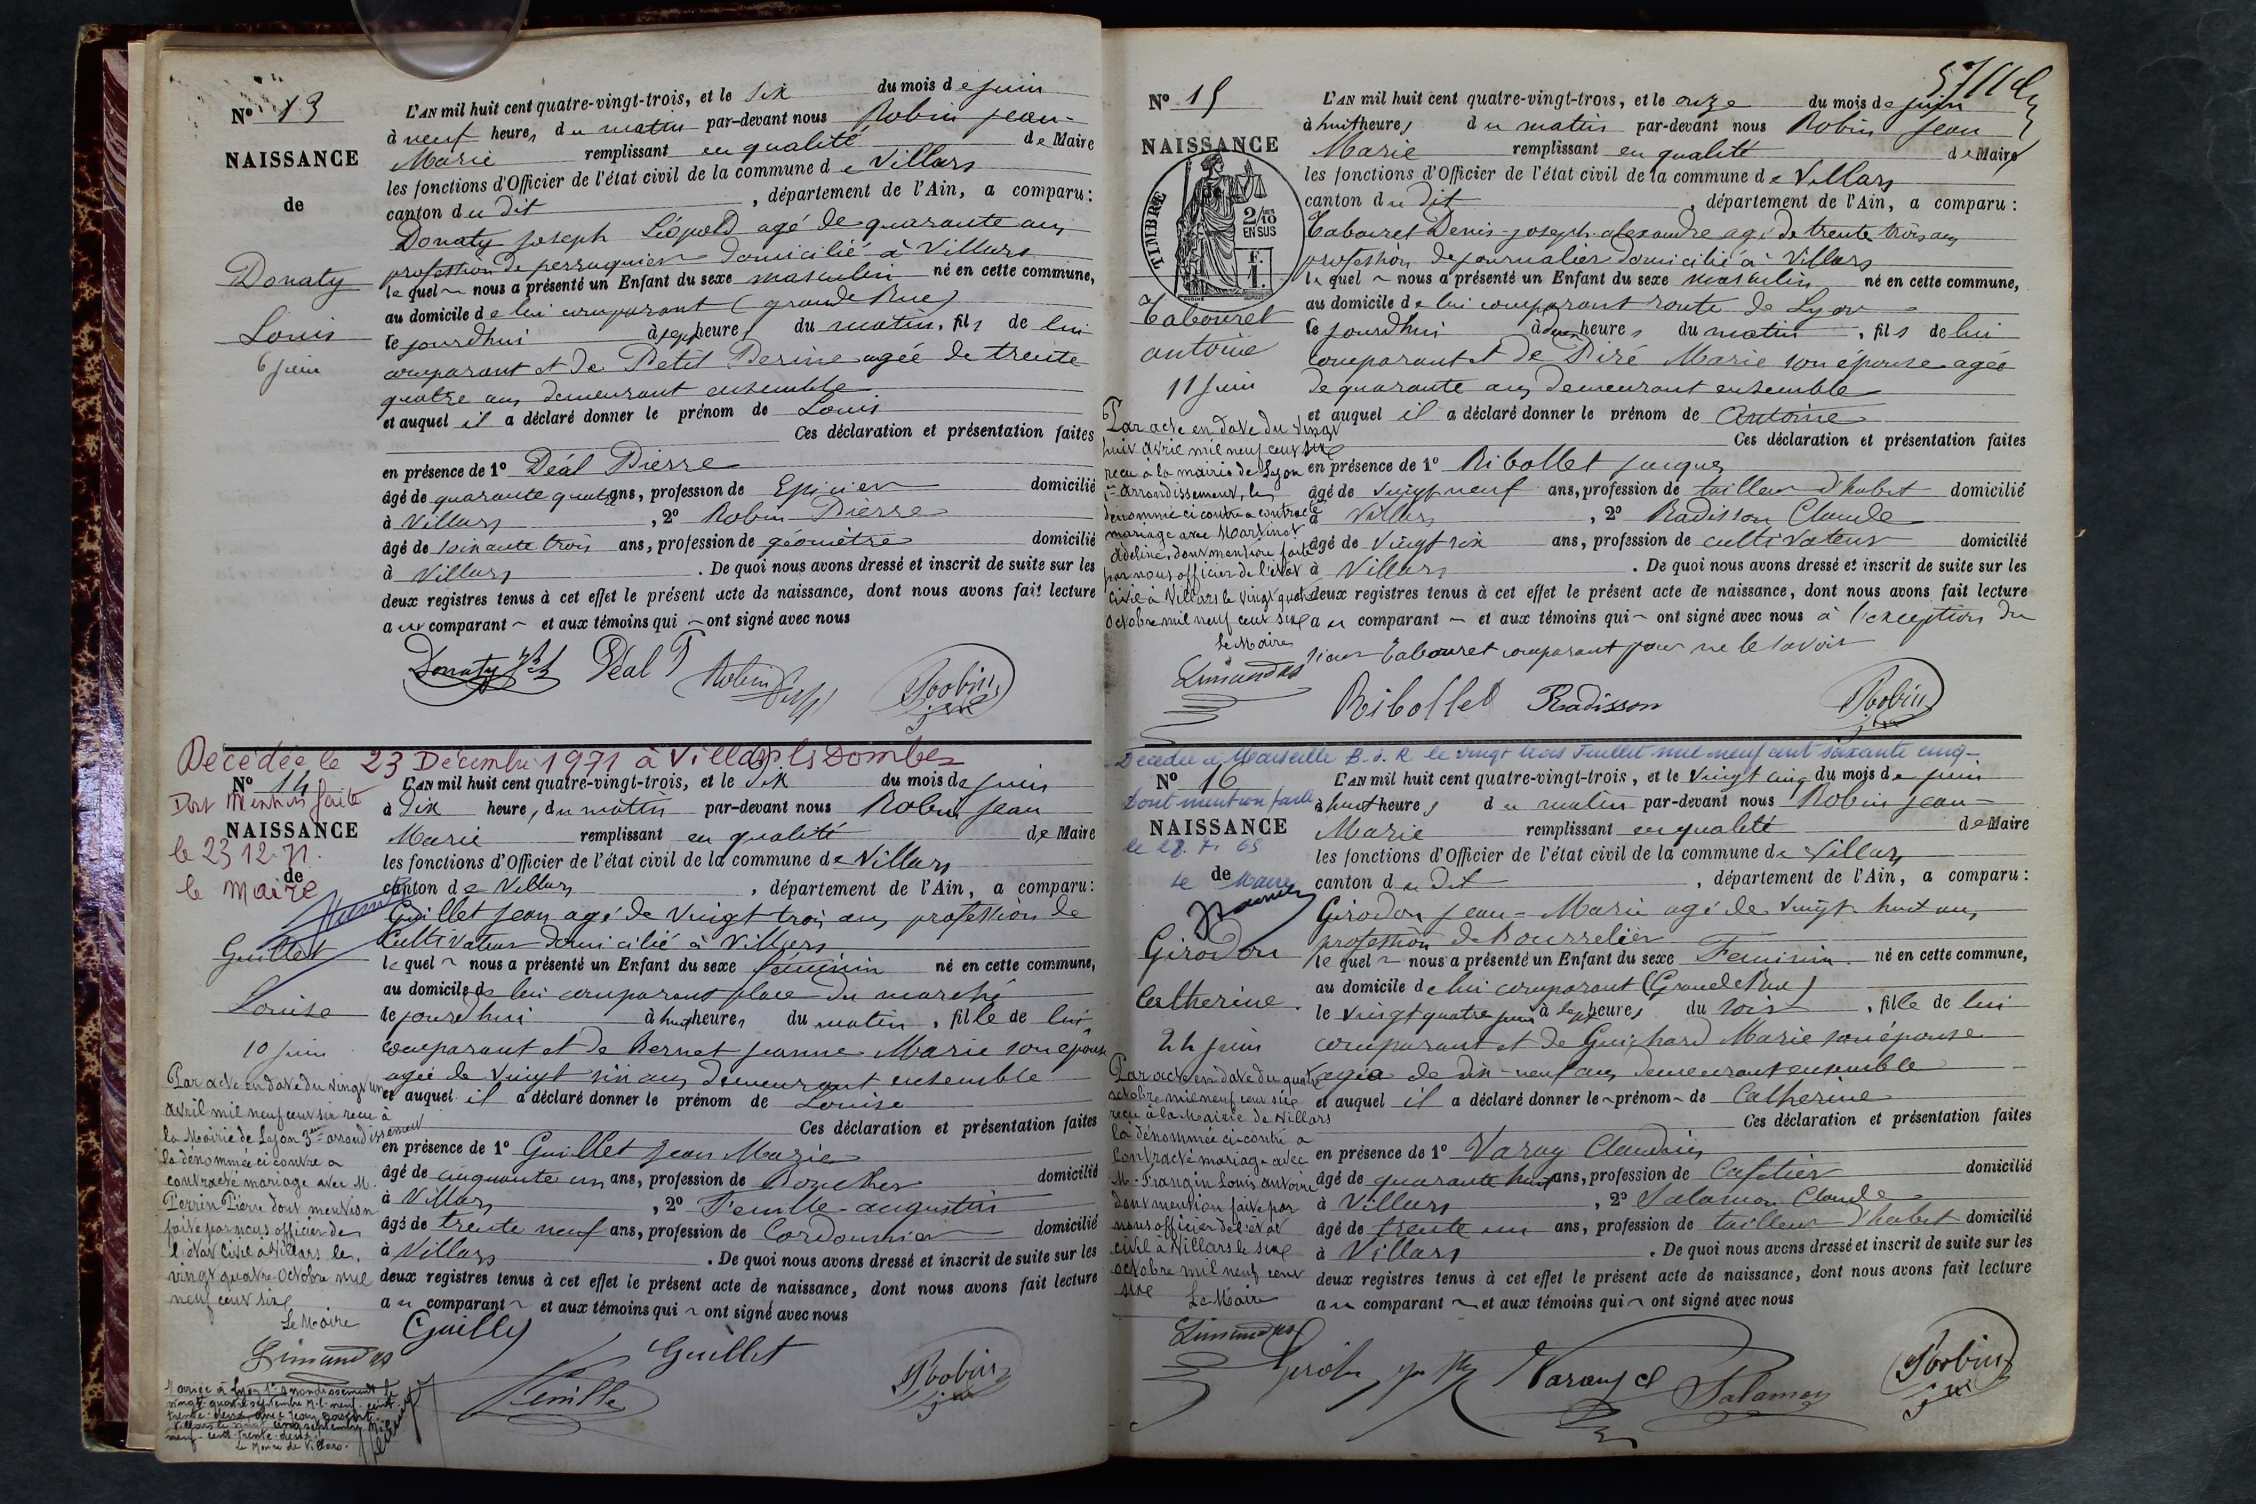 N° 13
NAISSANCE
de
Donaty
Louis
6 juin
L'AN mil huit cent quatre-vingt-trois, et le six du mois de juin
à neuf heures du matin par-devant nous Robin Jean-
Marie remplissant en qualité de Maire
les fonctions d'Officier de l'état civil de la commune de Villars
canton du dit, département de l'Ain, a comparu:
Donaty Joseph Léopold agé de quarante ans
profession de perruquier domicilié à Villars
lequel nous a présenté un Enfant du sexe masculin né en cette commune,
au domicile de lui comparant (grande Rue)
ce jourdhui à sept heures du matin, fils de lui
comparant et de Petit Perine agée de trente
quatre ans demeurant ensemble
et auquel il a déclaré donner le prénom de Louis
Ces déclaration et présentation faites
en présence de 1° Déal Pierre
âgé de quarante quatre ans, profession de Epicier domicilié
à Villars, 2° Robin Pierre
âgé de soixante trois ans, profession de géomètre domicilié
à Villars. De quoi nous avons dressé et inscrit de suite sur les
deux registres tenus à cet effet le présent acte de naissance, dont nous avons fait lecture
au comparant et aux témoins qui ont signé avec nous
Donaty Déal P Robin Robin
Décédée le 23 Décembre 1971 à Villars les Dombes
N° 14
Dont Mention faite
NAISSANCE
le 23 12. 71.
de
le Maire
Guillet
Louise
10 juin
Par acte en date du vingt un
avril mil neuf cent six reçu à
la Mairie de Lyon 3me arrondissement
la dénommée ci contre a
contracté mariage avec M.
Perrin Pierre dont mention
faite par nous officier de
l'état Civil à Villars le
vingt quatre Octobre mil
neuf cent six
Le Maire
Limandas
Mariée à Lyon 1er arrondissement le
vingt-quatre septembre mil neuf cent
trente-deux avec Jean
Villars le vingt cinq septembre mil
neuf cent trente-deux
Le Maire de Villars.
L'AN mil huit cent quatre-vingt-trois, et le dix du mois de juin
à dix heure, du matin par-devant nous Robin Jean
Marie remplissant en qualité de Maire
les fonctions d'Officier de l'état civil de la commune de Villars
canton de Villars, département de l'Ain, a comparu:
Guillet Jean agé de vingt trois ans profession de
Cultivateur domicilié à Villars
lequel nous a présenté un Enfant du sexe féminin né en cette commune,
au domicile de lui comparant place du marché
ce jourdhui à huit heures du matin, fille de lui
comparant et de Bernet Jeanne Marie son épouse
agée de vingt six ans demeurant ensemble
et auquel il a déclaré donner le prénom de Louise
Ces déclaration et présentation faites
en présence de 1° Guillet Jean Marie
âgé de cinquante un ans, profession de Boucher domicilié
à Villars, 2° Fenille augustin
âgé de trente neuf ans, profession de Cordonnier domicilié
à Villars. De quoi nous avons dressé et inscrit de suite sur les
deux registres tenus à cet effet le présent acte de naissance, dont nous avons fait lecture
au comparant et aux témoins qui ont signé avec nous
Guillet Guillet
Fenille Robin
N° 15
NAISSANCE
TIMBRE
2/10 EN SUS
F. 1.
Tabouret
antoine
11 juin
Par acte en date du vingt
huit avril mil neuf cent six
reçu à la mairie de Lyon
1er arrondissement, le
dénommé ci contre a contracté
mariage avec Martinot
Adeline, dont mention faite
par nous officier de l'état
civil à Villars le vingt quatre
Octobre mil neuf cent six
Le Maire
Limandas
L'AN mil huit cent quatre-vingt-trois, et le onze du mois de juin
à huit heures du matin par-devant nous Robin Jean
Marie remplissant en qualité de Maire
les fonctions d'Officier de l'état civil de la commune de Villars
canton du dit, département de l'Ain, a comparu:
Tabouret Denis-joseph alexandre agé de trente trois ans
profession de journalier domicilié à Villars
lequel nous a présenté un Enfant du sexe masculin né en cette commune,
au domicile de lui comparant route de Lyon
ce jourdhui à deux heures du matin, fils de lui
comparant et de Piré Marie son épouse agée
de quarante ans demeurant ensemble
et auquel il a déclaré donner le prénom de Antoine
Ces déclaration et présentation faites
en présence de 1° Ribollet Jacques
âgé de vingt neuf ans, profession de tailleur d'habit domicilié
à Villars, 2° Radisson Claude
âgé de vingt six ans, profession de cultivateur domicilié
à Villars. De quoi nous avons dressé et inscrit de suite sur les
deux registres tenus à cet effet le présent acte de naissance, dont nous avons fait lecture
au comparant et aux témoins qui ont signé avec nous à l'exception du
sieur Tabouret comparant pour ne le savoir
Ribollet Radisson Robin
Décédée à Marseille B.d.R le vingt trois Juillet mil neuf cent soixante cinq
N° 16
Dont mention faite
NAISSANCE
le 28. 7. 65
de
Le Maire
Girodon
Catherine
24 juin
Par acte en date du quatre
octobre mil neuf cent six
reçu à la Mairie de Villars
la dénommée ci-contre a
contracté mariage avec
M. Frangin Louis antoine
dont mention faite par
nous officier de l'état
civil à Villars le six
octobre mil neuf cent
six
Le Maire
Limandas
L'AN mil huit cent quatre-vingt-trois, et le vingt cinq du mois de juin
à huit heures du matin par-devant nous Robin Jean-
Marie remplissant en qualité de Maire
les fonctions d'Officier de l'état civil de la commune de Villars
canton du dit, département de l'Ain, a comparu:
Girodon Jean-Marie agé de vingt huit ans,
profession de Bourrelier
lequel nous a présenté un Enfant du sexe Feminin né en cette commune,
au domicile de lui comparant (Grande Rue)
le vingt quatre juin à sept heures du soir, fille de lui
comparant et de Guichard Marie son épouse
agée de dix-neuf ans demeurant ensemble
et auquel il a déclaré donner le prénom de Catherine
Ces déclaration et présentation faites
en présence de 1° Varay Claudin
âgé de quarante huit ans, profession de Cafetier domicilié
à Villars, 2° Salamon Claude
âgé de trente un ans, profession de tailleur d'habit domicilié
à Villars. De quoi nous avons dressé et inscrit de suite sur les
deux registres tenus à cet effet le présent acte de naissance, dont nous avons fait lecture
au comparant et aux témoins qui ont signé avec nous
Varay Salamon Robin